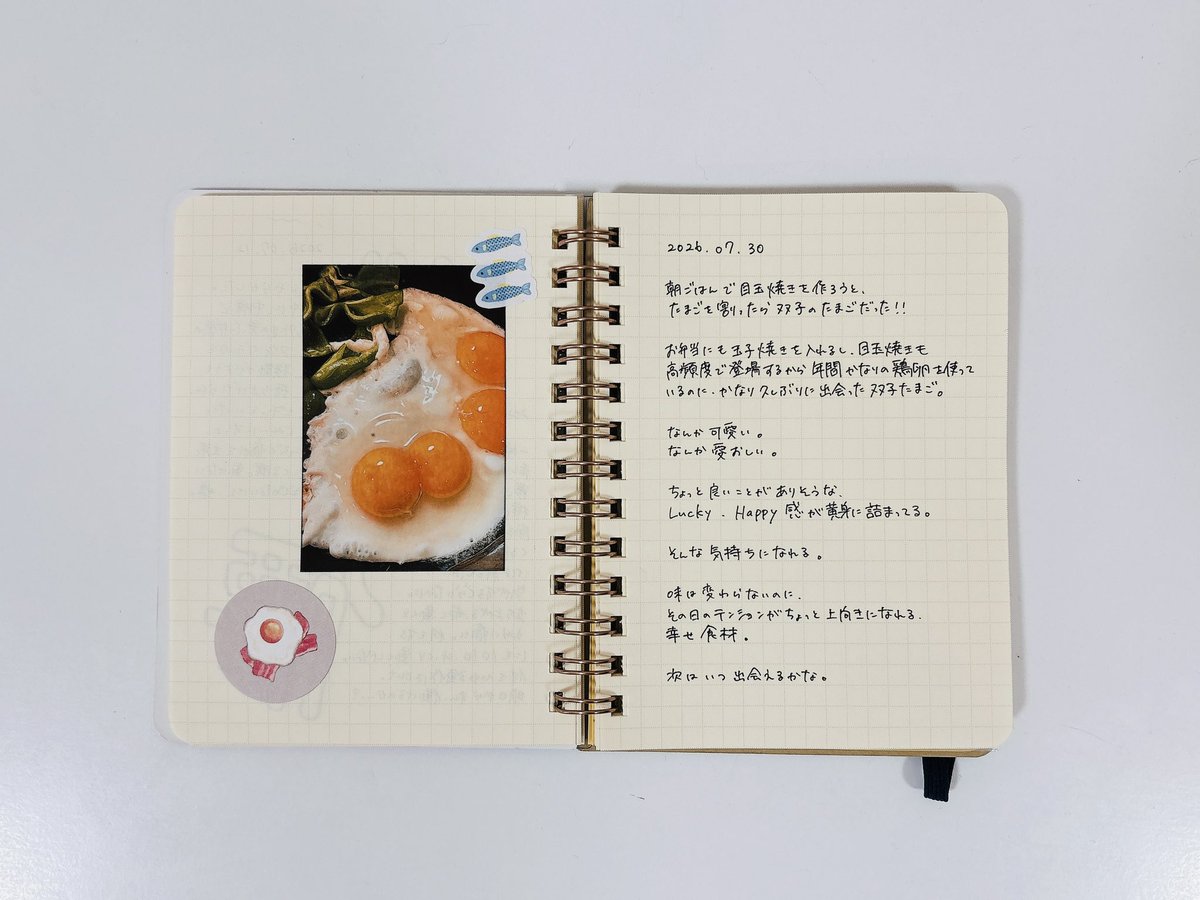 2026.07.30
朝ごはんで目玉焼きを作ろうと、
たまごを割ったら双子のたまごだった!!
お弁当にも玉子焼きを入れるし、目玉焼きも
高頻度で登場するから年間かなりの鶏卵を使って
いるのに、かなり久しぶりに出会った双子たまご。
なんか可愛い。
なんか愛おしい。
ちょっと良いことがありそうな、
Lucky、Happy感が黄身に詰まってる。
そんな気持ちになれる。
味は変わらないのに、
その日のテンションがちょっと上向きになれる、
幸せ食材。
次はいつ出会えるかな。